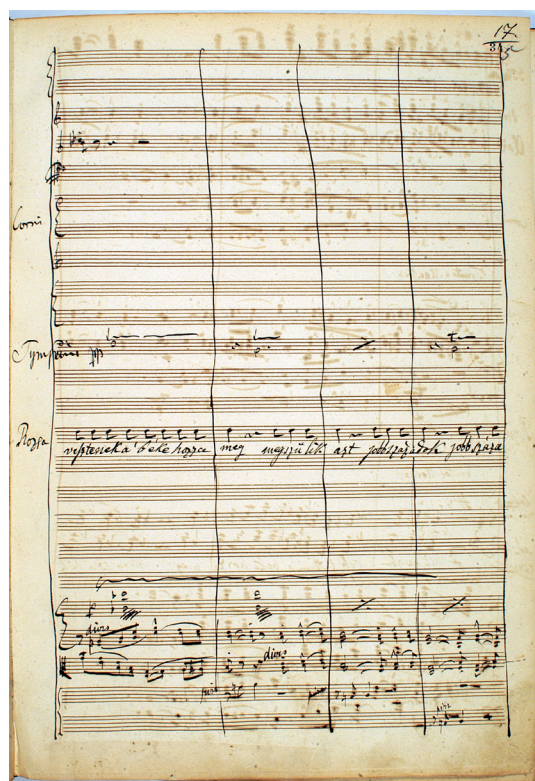 17
Corni
Tympani pp
Rozsa
vesztenek a béke hozza meg megszülik azt jobb századok jobb száza
f
divis
divis
pizz
pizz